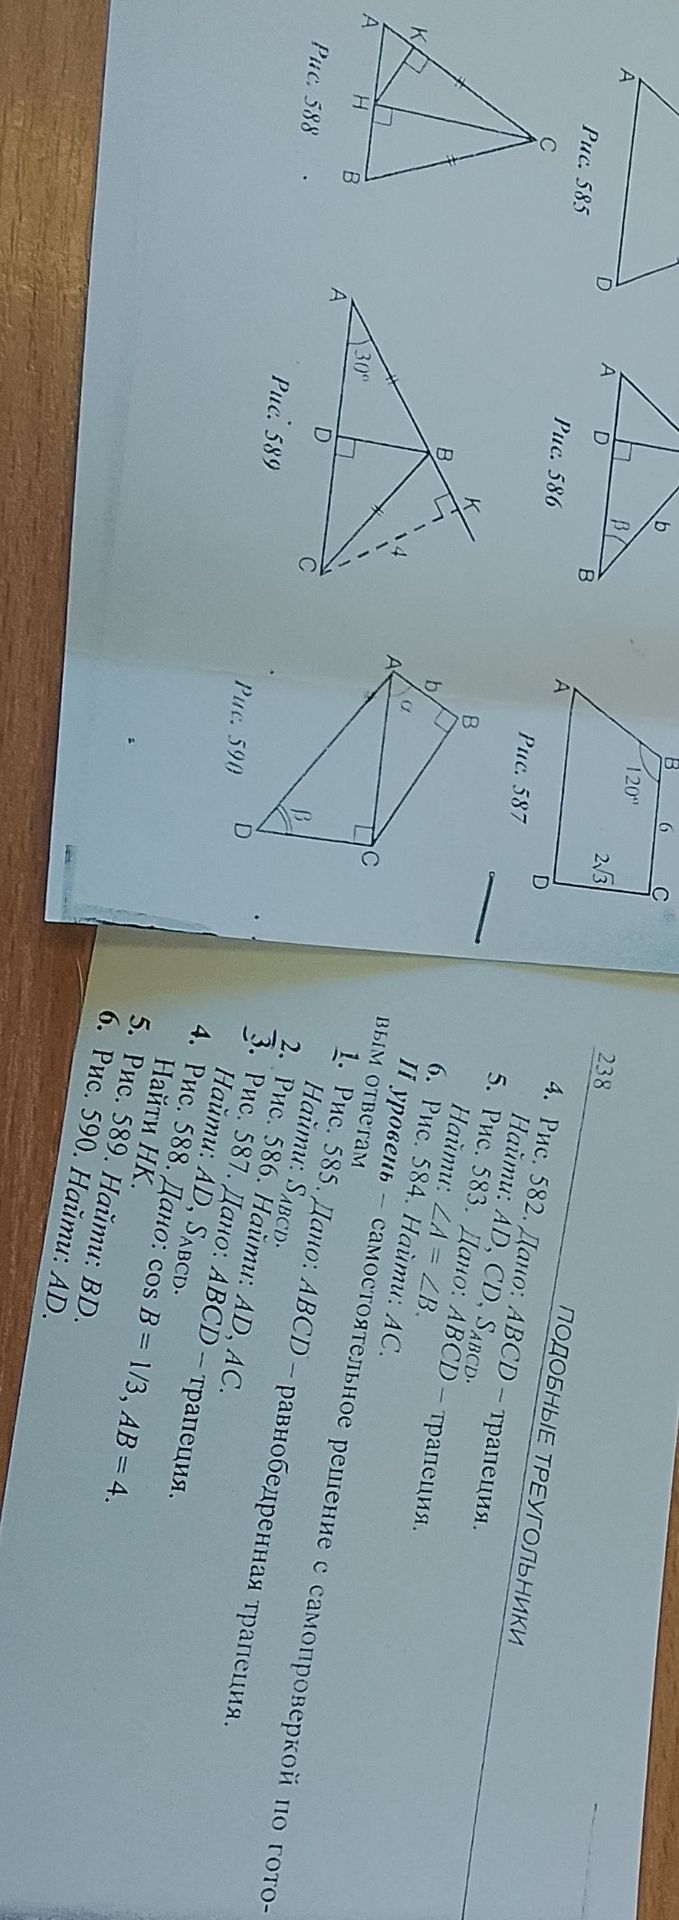 A
D
Рис. 585
A
D
B
b
β
Рис. 586
A
B
C
D
120°
6
2√3
Рис. 587
A
K
H
B
C
Рис. 588
A
B
K
C
D
30°
4
Рис. 589
A
B
C
D
b
α
β
Рис. 590
238
ПОДОБНЫЕ ТРЕУГОЛЬНИКИ
4. Рис. 582. Дано: ABCD – трапеция.
Найти: AD, CD, SABCD.
5. Рис. 583. Дано: ABCD – трапеция.
Найти: ∠A = ∠B.
6. Рис. 584. Найти: AC.
II уровень – самостоятельное решение с самопроверкой по гото-
вым ответам
1. Рис. 585. Дано: ABCD – равнобедренная трапеция.
Найти: SABCD.
2. Рис. 586. Найти: AD, AC.
3. Рис. 587. Дано: ABCD – трапеция.
Найти: AD, SABCD.
4. Рис. 588. Дано: cos B = 1/3, AB = 4.
Найти HK.
5. Рис. 589. Найти: BD.
6. Рис. 590. Найти: AD.